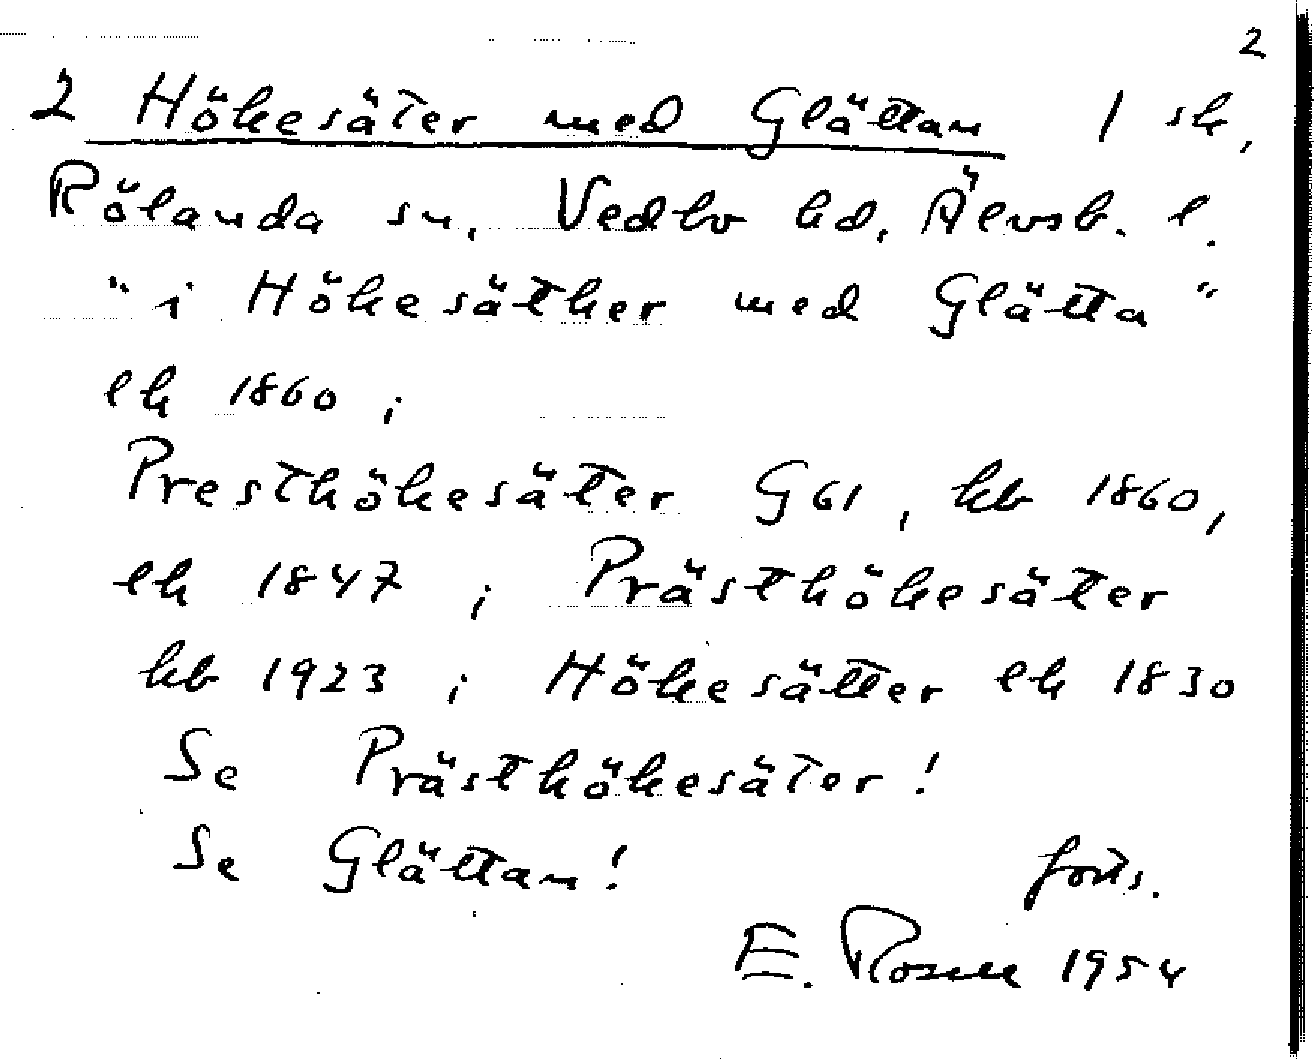 2
2 Hökesäter med Glättan 1 sk,
Rölanda sn, Vedbo hd, Älvsb. l.
"i Hökesäther med Glätta"
lk 1860;
Presthökesäter G 61, kb 1860,
lk 1847; Prästhökesäter
kb 1923; Hökesätter lk 1830
Se Prästhökesäter!
Se Glättan! forts.
E. Rosell 1954